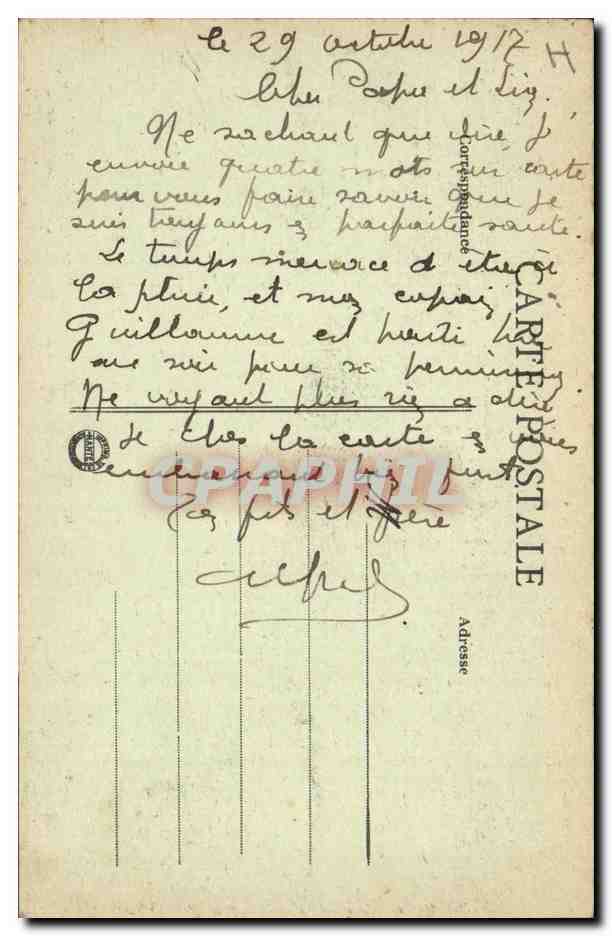 le 29 octobre 1917 H
Cher Papa et
Ne sachant que dire, Je
envoie quatre mots sur carte
pour vous faire savoir que je
suis toujours en parfaite santé.
Le temps menace d'être à
la pluie, et mon copain
Guillaume est parti
ce soir pour sa
Ne voyant plus rien a dire
Je clos la carte en
embrassant bien fort
Ton fils et frère
Alfred
Correspondance
CARTE POSTALE
Adresse
CPAPHIL